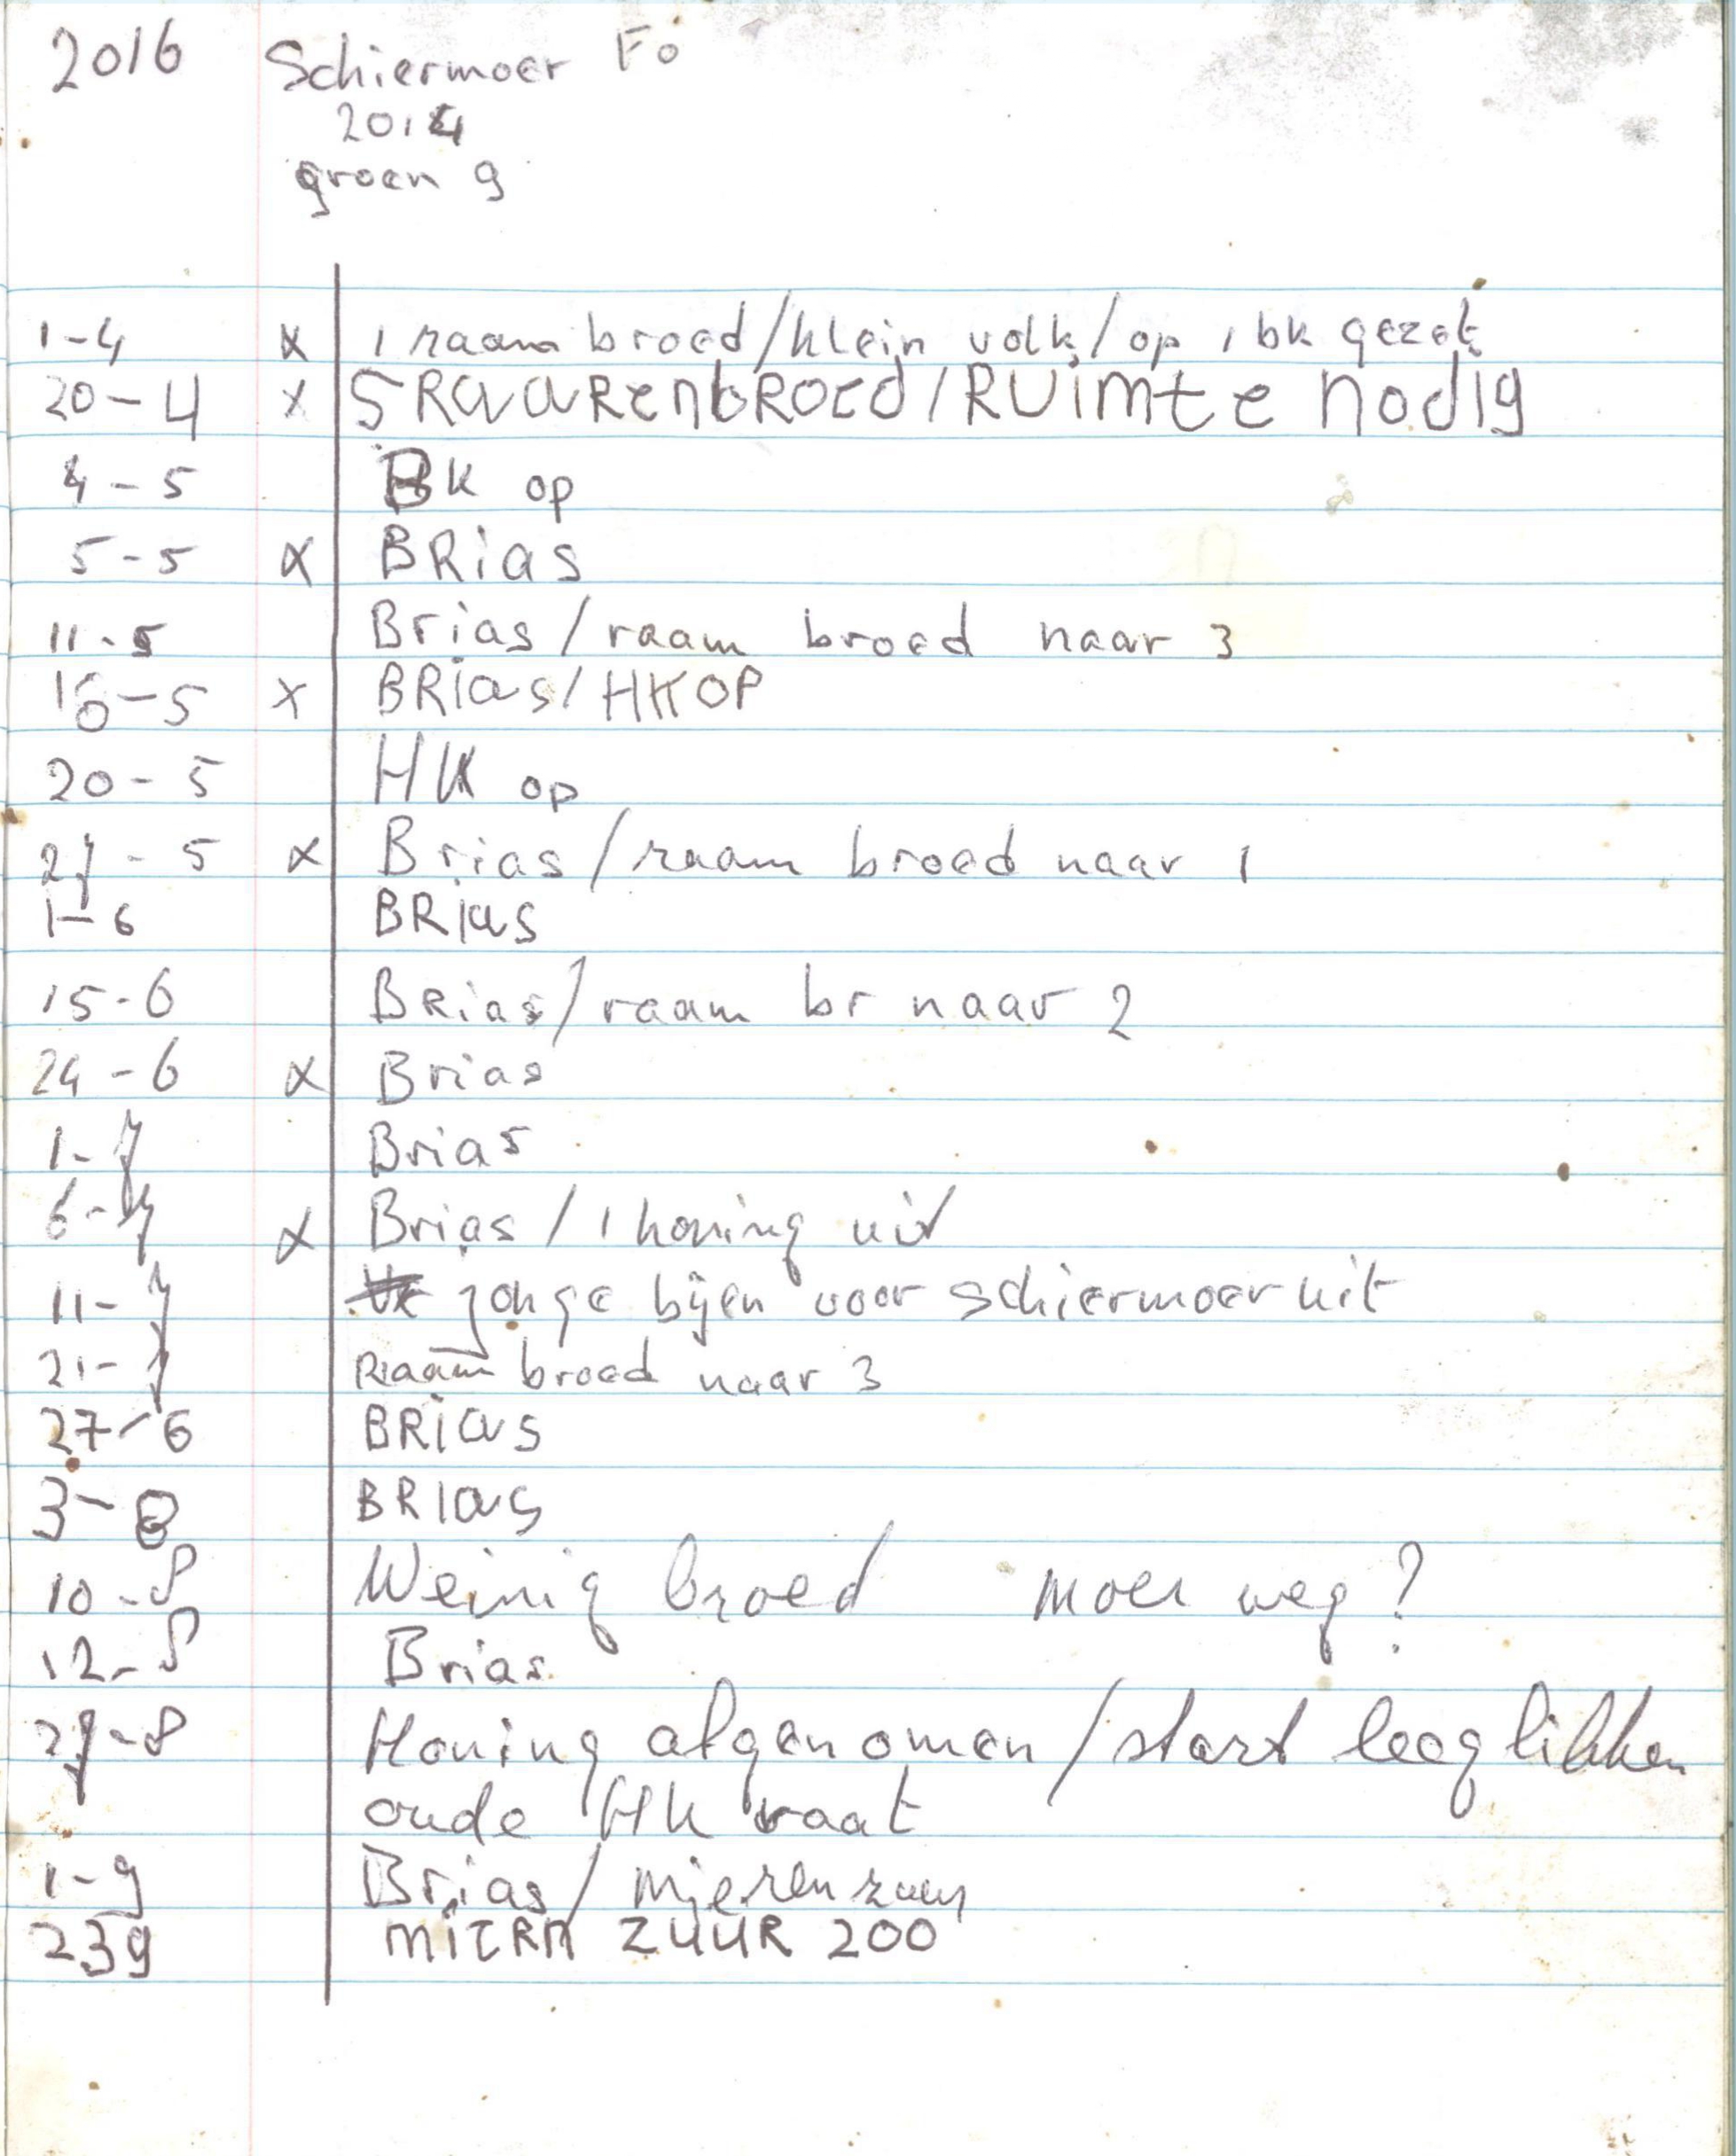 2016 Schiermoer Fo
2014
groen 9
1-4 x 1 raam broed/klein volk/op 1 bk gezet
20-4 x 5 RaaRenbRoed/RUimte nodig
4-5 BK op
5-5 x BRias
11-5 Brias/raam broed naar 3
16-5 x BRias/HKOP
20-5 HK op
27-5 x Brias/raam broed naar 1
1-6 BRias
15-6 BRias/raam br naar 2
24-6 x Brias
1-7 Brias
6-7 x Brias/1 honing uit
11-7 jonge bijen voor schiermoer uit
21-7 Raam broed naar 3
27-6 BRias
3-8 BRIas
10-8 Weinig broed moer weg?
12-8 Brias
27-8 Honing afgenomen/start leeg likken
oude HK raat
1-9 Brias/mierenzuur
239 ZUUR 200